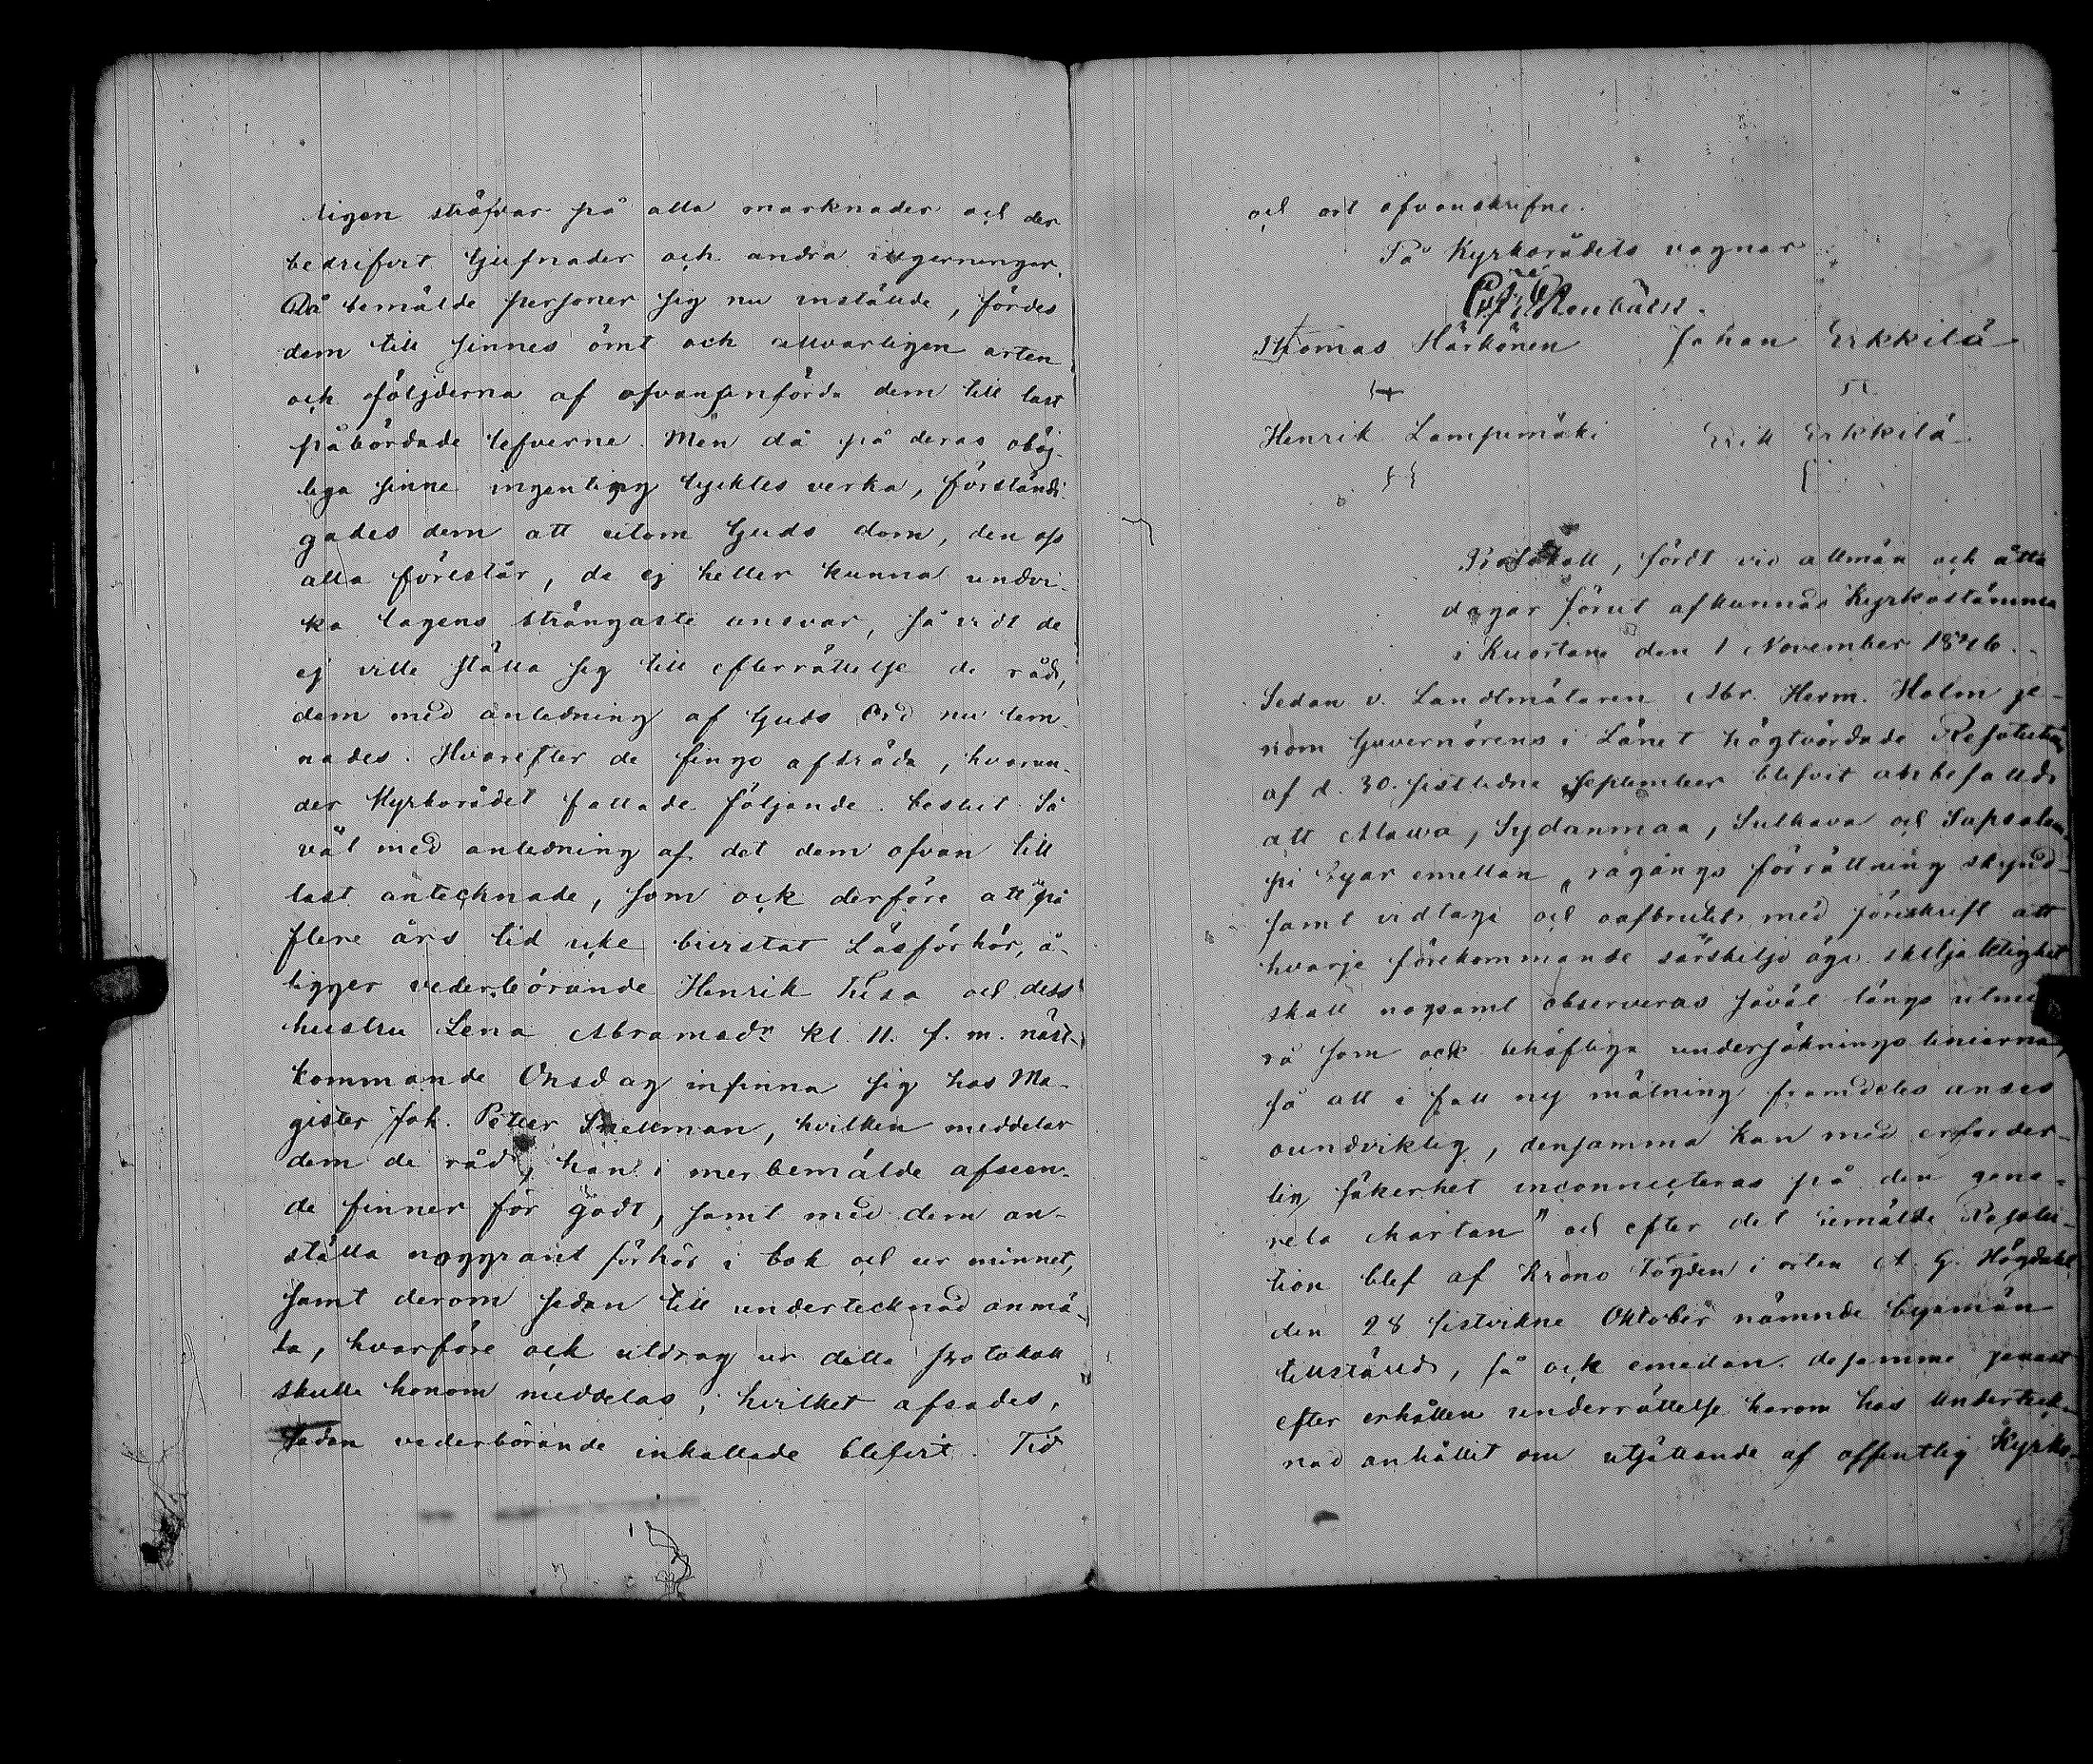 ligen sträfvar på alla marknader och der
bedrifvit tjufnader och andra ilgerningar.
Då bemälde personer sig nu inställde, fördes
dem till sinnes ömt och allvarligen arten
och följderna af ofvananförda dem till last
påbördade lefverne. Men då på deras oböj-
liga sinne ingenting tycktes verka, förständi-
gades dem att utom Guds dom, den oss
alla förestår, de ej heller kunna undvi-
ka lagens strängaste ansvar, så vidt de
ej ville ställa sig till efterrättelse de råd,
dem med anledning af Guds Ord nu lem-
nades. Hvarefter de fingo afträda, hvarun-
der Kyrkorådet fattade följande beslut. Så
väl med anledning af det dem ofvan till
last antecknade, som ock derföre att på
flere års tid icke bivistat Läsförhör, å-
ligger vederbörande Henrik Tusa och dess
hustru Lena Abramsdr kl. 11. f. m. näst-
kommande Onsdag infinna sig hos Ma-
gister Joh. Petter Snellman, hvilken meddelar
dem de råd, han i merbemälde afseen-
de finner för godt, samt med dem an-
ställa noggrant förhör i bok och ur minnet,
samt derom sedan till undertecknad anmä-
la, hvarföre ock utdrag ur detta protokoll
skulle honom meddelas; hvilket afsades,
sedan vederbörande inkallade blifvit. Tid
och ort ofvanskrifne.
På Kyrkorådets vagnar
Thomas Härkönen Johan Erkkilä
Henrik Lampumäki Erik Erkkilä
Protokoll, fördt vid allmän och åtta
dagar förut afkunnad Kyrkostämma
i Kuortane den 1 November 1846.
Sedan v. Landtmätaren Abr. Herm. Holm ge-
nom Guvernörens i Länet högtvördade Resolution
af d. 30. sistledne September blefvit anbefalld
att Alawa, Sydanmaa, Sulkava och Sapsalam-
pi byar emellan "rågångs förrättning skynd-
samt vidtaga och oafbrutet med föreskrift att
hvarje förekommande särskilje äga skiljaktighet
skall nogsamt observeras såväl längs utmed
rå som ock behöfliga undersöknings linierna,
så att i fall ny mätning framdeles anses
oundviklig, densamma kan med erforder-
lig säkerhet inconnecteras på den gene-
rela chartan" och efter det bemälde Resolu-
tion blef af Krono Fogden i orten A. G. Högdahl
den 28 sistvikne Oktober nämnde byamän
tillställd, så ock emedan desamme genast
efter erhållen underrättelse härom hos Underteck-
nad anhållit om utsättande af offentlig Kyrko-